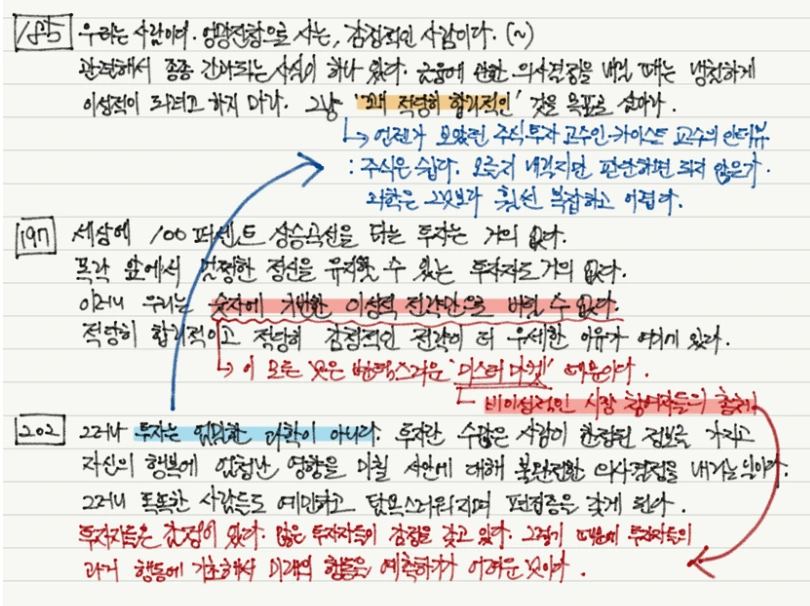 185 우리는 사람이다. 엉망진창으로 사는, 감정적인 사람이다. (~)
관련해서 종종 간과되는 사실이 하나 있다. 금융에 관한 의사결정을 내릴 때는 냉철하게
이성적이 되려고 하지 마라. 그냥 '꽤 적당히 합리적인' 것을 목표로 삼아라.
↳ 언젠가 보았던 주식투자 고수인 카이스트 교수의 인터뷰
: 주식은 쉽다. 오를지 내릴지만 판단하면 되지 않은가.
과학은 그것보다 훨씬 복잡하고 어렵다.
197 세상에 100 퍼센트 상승곡선을 타는 투자는 거의 없다.
폭락 앞에서 멀쩡한 정신을 유지할 수 있는 투자자도 거의 없다.
이러니 우리는 숫자에 기반한 이성적 전략만으로 버틸 수 없다.
적당히 합리적이고 적당히 감정적인 전략이 더 우세한 이유가 여기에 있다.
↳ 이 모든 것은 변덕스러운 '미스터 마켓' 때문이다.
비이성적인 시장 참여자들의 총체
202 그러나 투자는 엄밀한 과학이 아니다. 투자란 수많은 사람이 한정된 정보를 가지고
자신의 행복에 엄청난 영향을 미칠 사안에 대해 불완전한 의사결정을 내리는 일이다.
그러니 똑똑한 사람들도 예민하고 탐욕스러워지며 편집증을 갖게 된다.
투자자들은 감정이 있다. 많은 투자자들이 감정을 갖고 있다. 그렇기 때문에 투자자들의
과거 행동에 기초해서 미래의 행동을 예측하기가 어려운 것이다.